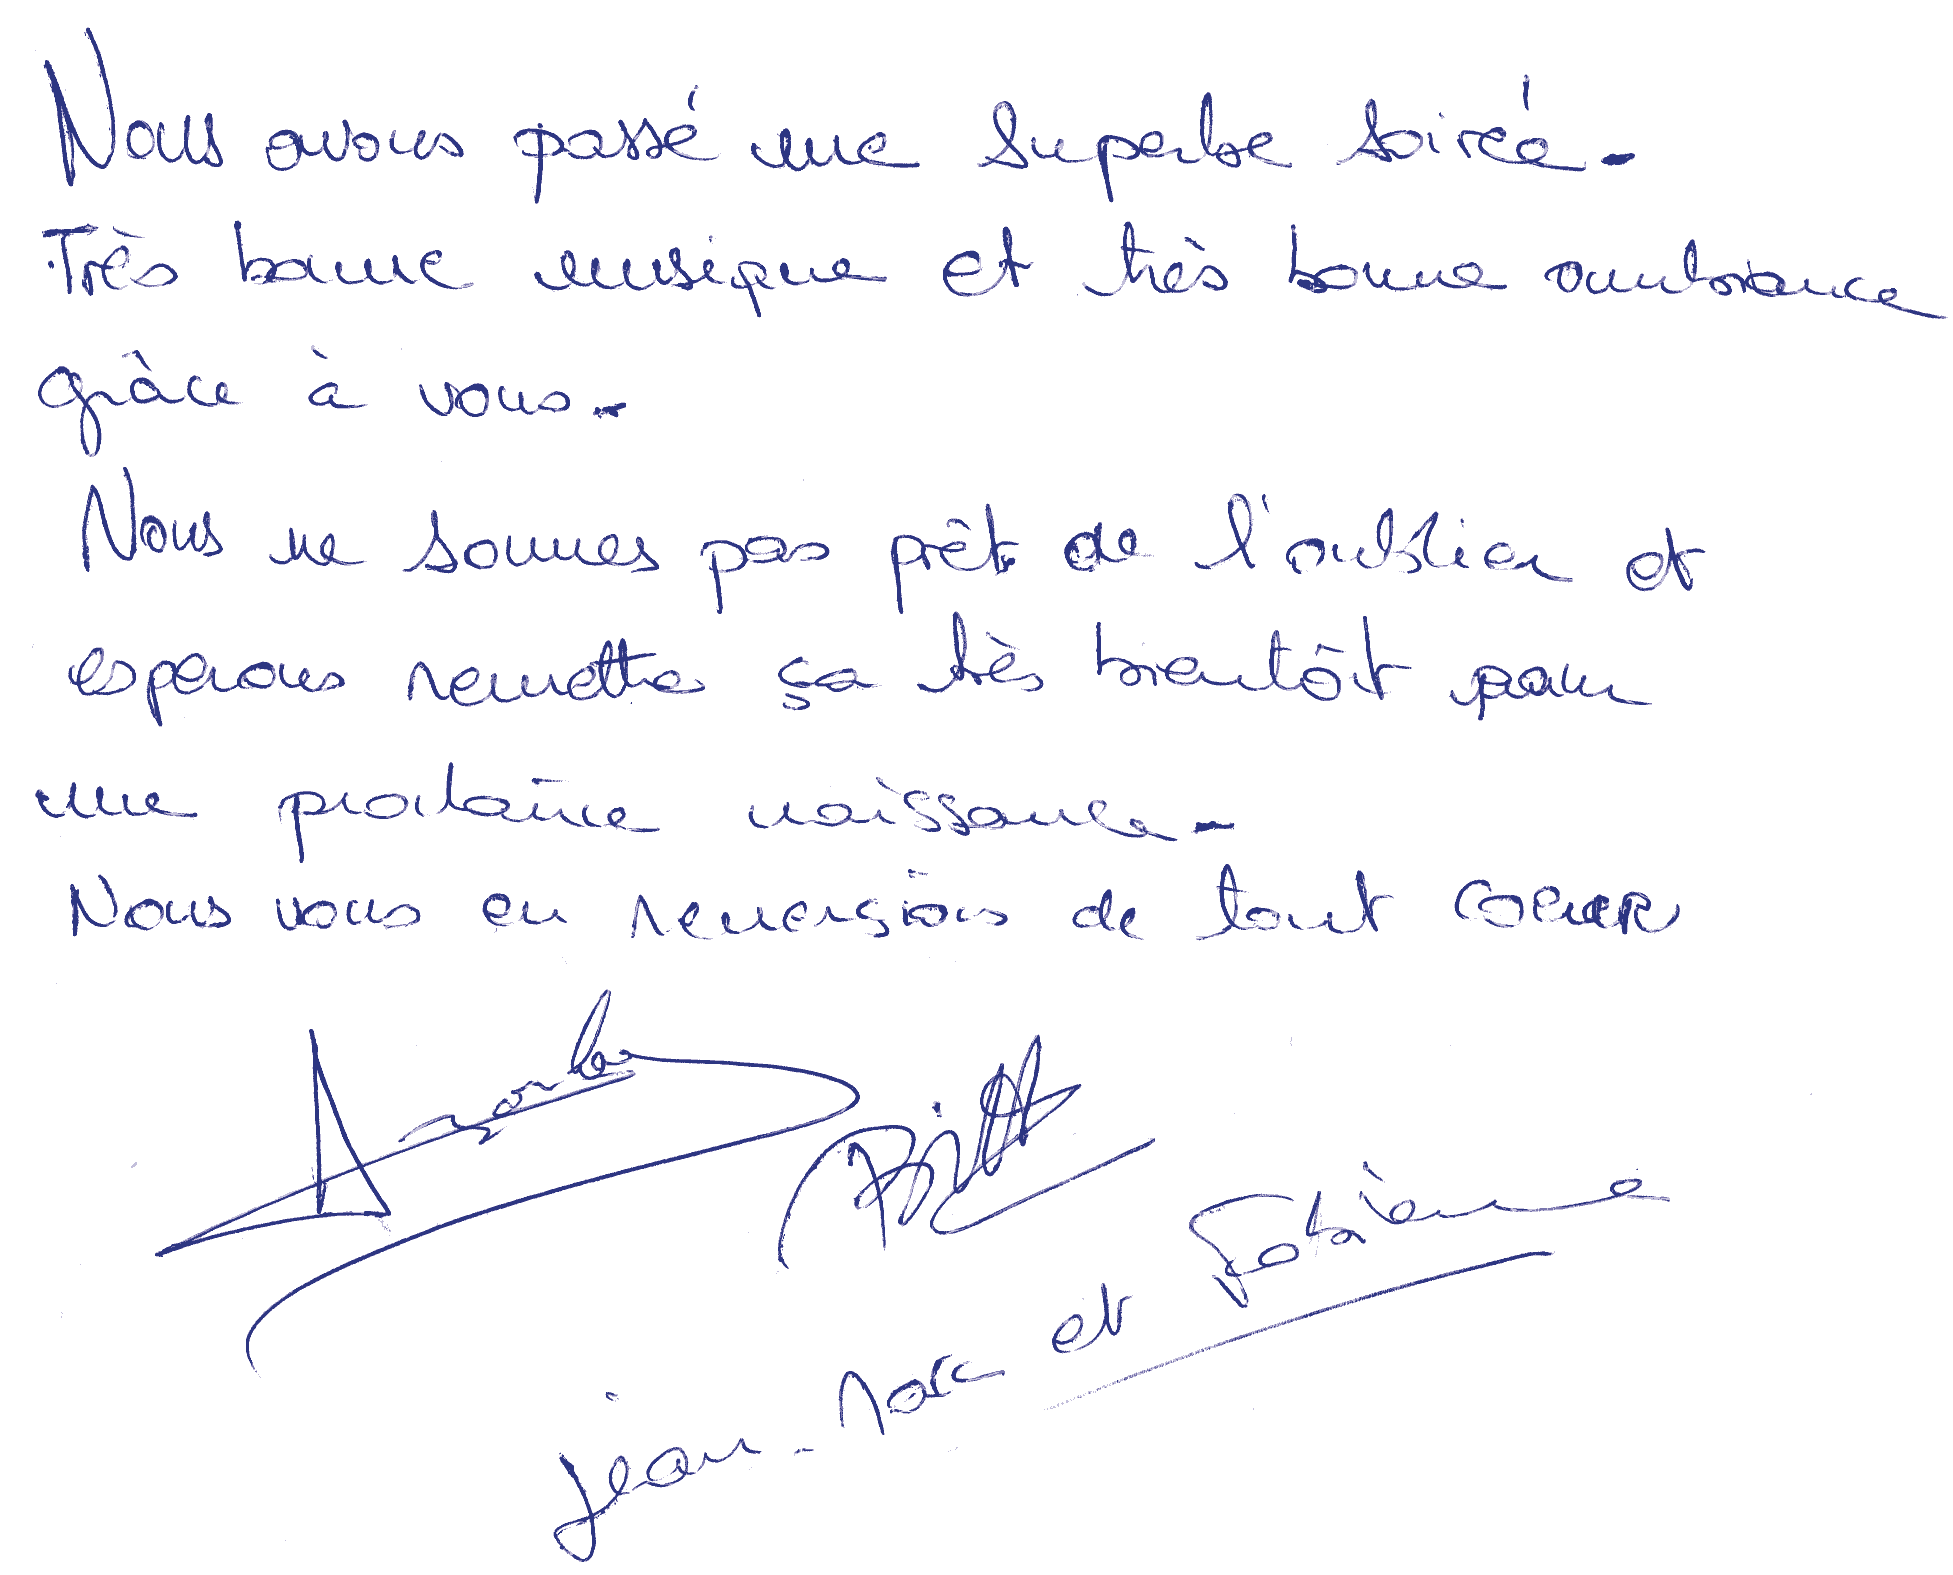 Nous avons passé une superbe soirée.
Très bonne musique et très bonne ambiance
grâce à vous.
Nous ne sommes pas prêt de l'oublier et
esperons remettre ça très bientôt pour
une prochaine naissance.
Nous vous en remersions de tout COEUR
Britt
jean-Marc et Fabienne